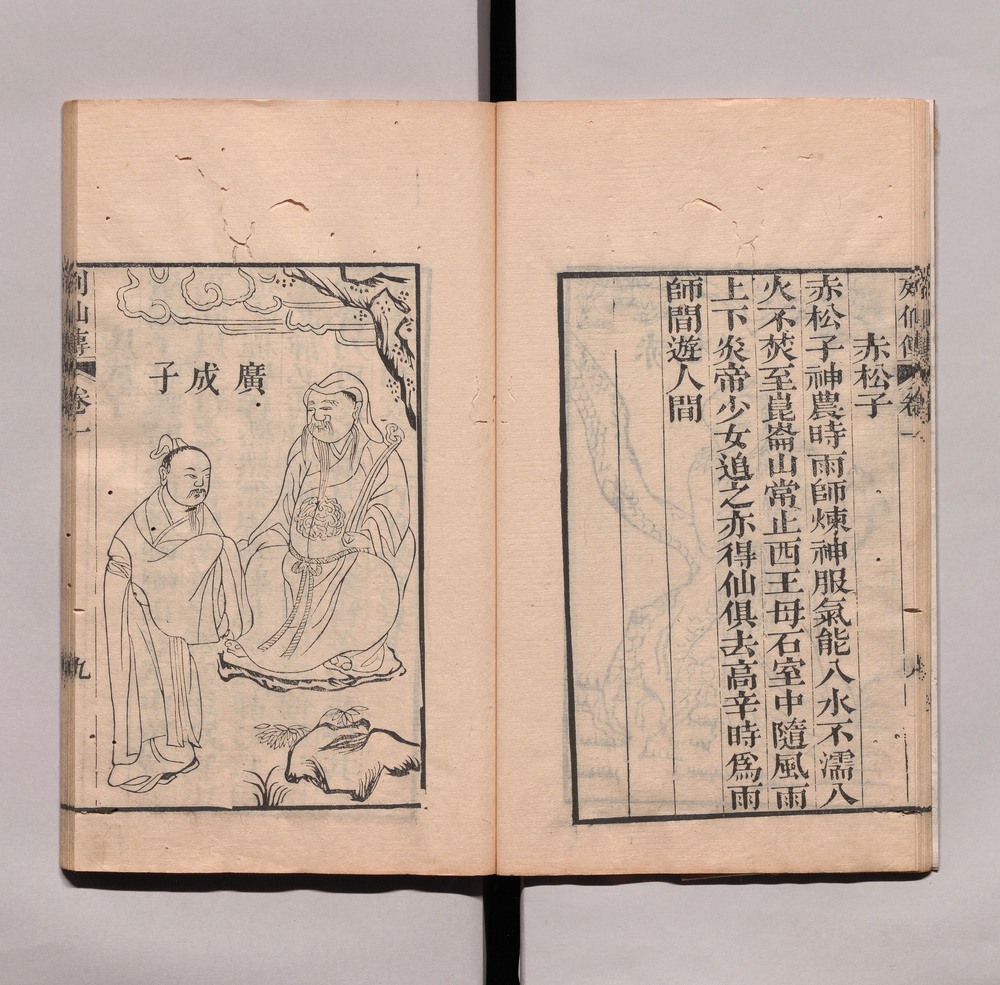 列仙傳 卷一
赤松子
赤松子神農時雨師煉神服氣能入水不濡入
火不焚至崑崙山常止西王母石室中隨風雨
上下炎帝少女追之亦得仙俱去高辛時爲雨
師間遊人間
廣成子
列仙傳 卷一 九